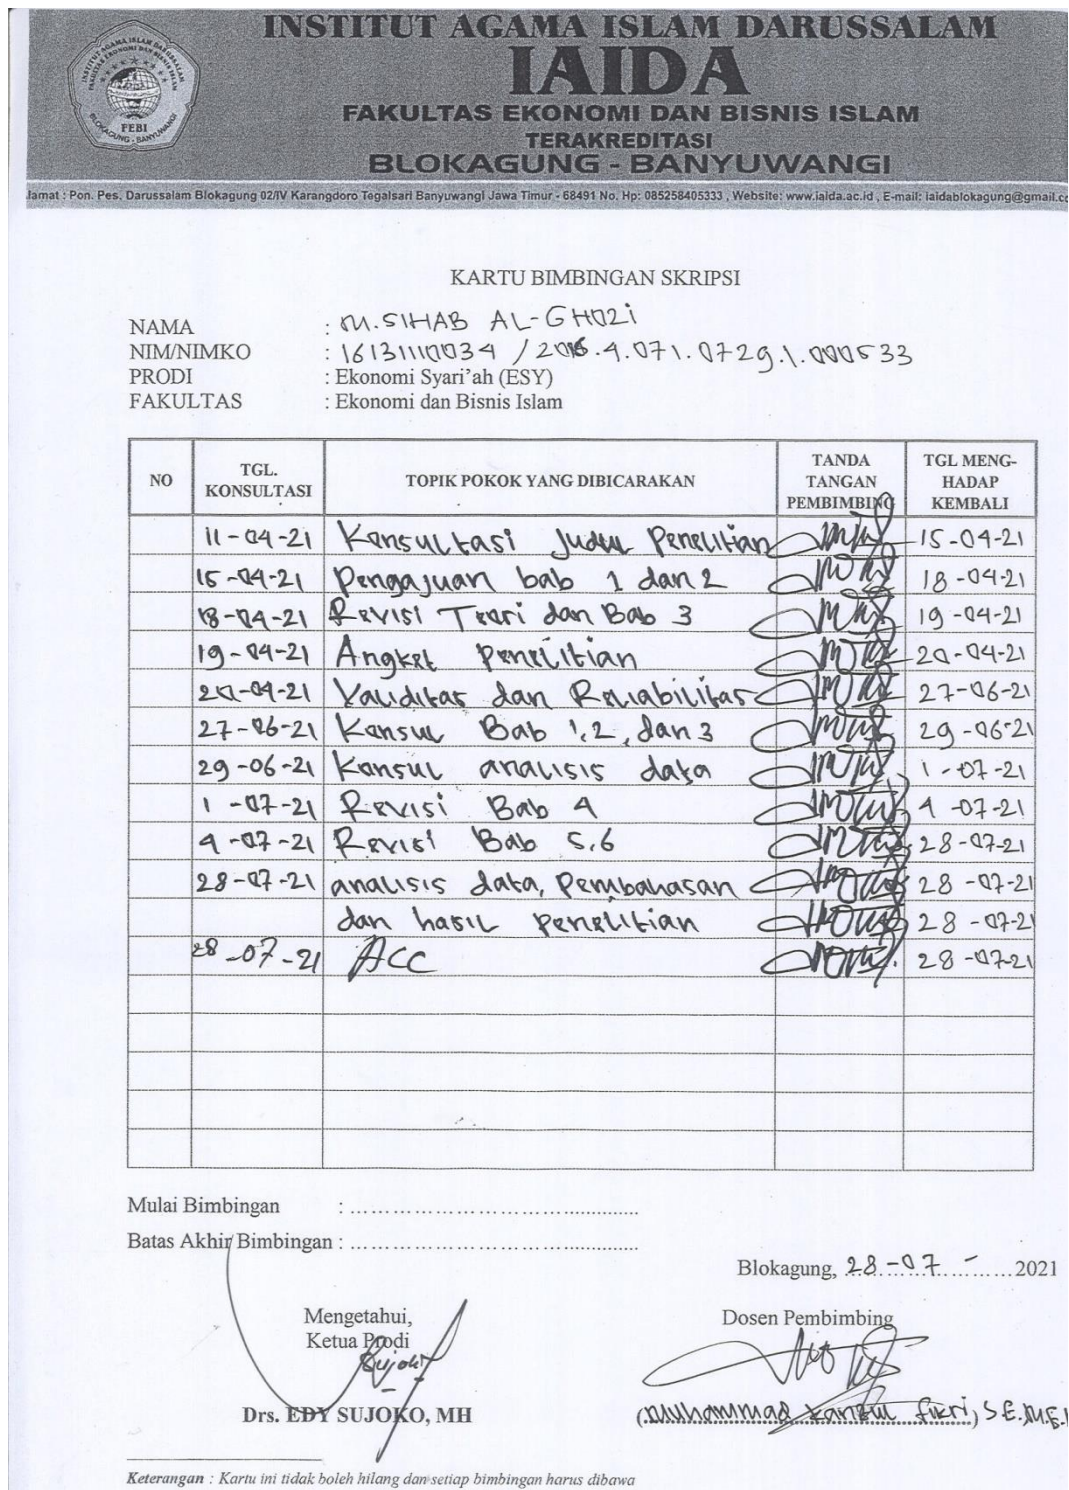 INSTITUT AGAMA ISLAM DARUSSALAM
IAIDA
FAKULTAS EKONOMI DAN BISNIS ISLAM
TERAKREDITASI
BLOKAGUNG - BANYUWANGI
INSTITUT AGAMA ISLAM DARUSSALAM
FAKULTAS EKONOMI DAN BISNIS ISLAM
FEBI
BLOKAGUNG - BANYUWANGI
lamat : Pon. Pes. Darussalam Blokagung 02/IV Karangdoro Tegalsari Banyuwangi Jawa Timur - 68491 No. Hp: 085258405333 , Website: www.iaida.ac.id , E-mail: iaidablokagung@gmail.co
KARTU BIMBINGAN SKRIPSI
NAMA : M. SIHAB AL-GHOZi
NIM/NIMKO : 16131110034 / 2016.4.071.0729.1.000533
PRODI : Ekonomi Syari'ah (ESY)
FAKULTAS : Ekonomi dan Bisnis Islam
NO TGL. KONSULTASI TOPIK POKOK YANG DIBICARAKAN TANDA TANGAN PEMBIMBING TGL MENG-HADAP KEMBALI
11-04-21 Konsultasi Judul Penelitian 15-04-21
15-04-21 Pengajuan bab 1 dan 2 18-04-21
18-04-21 Revisi Teori dan Bab 3 19-04-21
19-04-21 Angket Penelitian 20-04-21
20-04-21 Validitas dan Reliabilitas 27-06-21
27-06-21 Konsul Bab 1,2, dan 3 29-06-21
29-06-21 Konsul analisis data 1-07-21
1-07-21 Revisi Bab 4 4-07-21
4-07-21 Revisi Bab 5,6 28-07-21
28-07-21 analisis data, Pembahasan 28-07-21
dan hasil Penelitian 28-07-21
28-07-21 ACC 28-07-21
Mulai Bimbingan : ..........................................
Batas Akhir Bimbingan : ..........................................
Blokagung, 28-07- 2021
Mengetahui,
Ketua Prodi
Sujoko
Drs. EDY SUJOKO, MH
Dosen Pembimbing
(Muhammad Kanzul Fikri), S.E.M.E.
Keterangan : Kartu ini tidak boleh hilang dan setiap bimbingan harus dibawa